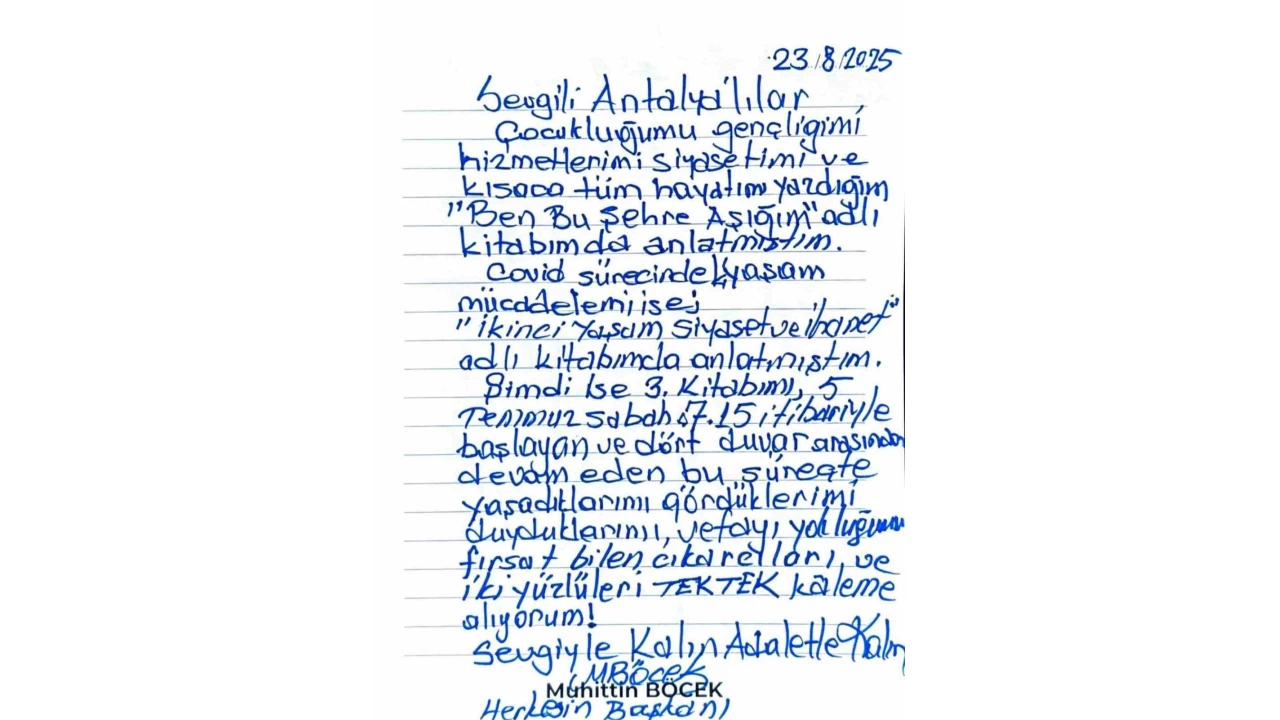 23/8/2025
Sevgili Antalya'lılar
Çocukluğumu gençliğimi
hizmetlerimi siyasetimi ve
kısaca tüm hayatımı yazdığım
"Ben Bu Şehre Aşığım" adlı
kitabımda anlatmıştım.
Covid sürecindeki yaşam
mücadelemi ise;
"ikinci Yaşam Siyaset ve ihanet"
adlı kitabımda anlatmıştım.
Şimdi ise 3. Kitabımı, 5
Temmuz sabah 07.15 itibariyle
başlayan ve dört duvar arasından
devam eden bu süreçte
yaşadıklarımı gördüklerimi
duyduklarımı, vefayı yokluğumu
fırsat bilen çıkarcıları, ve
iki yüzlüleri TEK TEK kaleme
alıyorum!
Sevgiyle Kalın Adaletle Kalın
MBöcek
Muhittin BÖCEK
Herkesin Başkanı